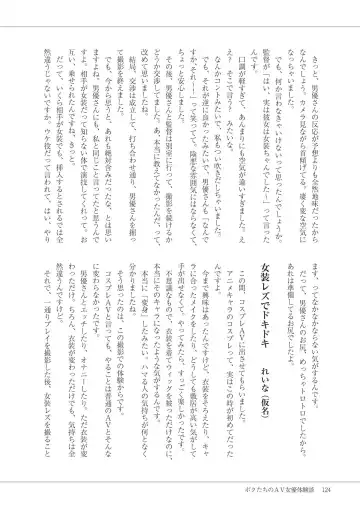 きっと、男優さんの反応が予想よりも全然地味だったから
なんでしょう。カメラ見ながら首傾げてる。凄く変な空気に
なっちゃいました。
でも、何か言わなきゃいけないって思ったんでしょうか。
監督が「はい、実は彼女は女装ちゃんでした～」って言った
んです。
口調が軽すぎて、あんまりにも空気が違いすぎました。え
え？ そこで言う？ みたいな。
なんかコントみたいで、私もつい吹きだしちゃいました。
でも、それが逆に良かったみたいで、男優さんも「なんで
すか、それ～」って笑ってて。険悪な雰囲気にはならなくて、
ちょっと安心しました。
その後、男優さんと監督は別室に行って、撮影を続けるか
どうか交渉してました。あ、本当に教えてなかったんだ、って
改めて思いました。
結局、交渉は成立して、打ち合わせ通り、男優さんを掘っ
て撮影を終えました。
でも、今思うと、あれも絶対仕込みだったな、とは思い
ますよね。男優さんにも、私と同じこと言ってたと思うんで
すよ。相手が女装だって知らない体で演技してくれって。お
互い、乗せられちゃったんですね。
だって、いくら相手が女装でも、挿入するとされるでは全
然違うじゃないですか。ウケ役だって言われて、はい、やり
ます、ってなかなかならない気がするんです。
だって、男優さんのお尻、めっちゃトロトロでしたから。
あれは準備してるお尻でしたよ。
女装レズでドキドキ れいな（仮名）
この間、コスプレAVに出させてもらいました。
アニメキャラのコスプレって、実はこの時が初めてだった
んですよ。
今まで興味はあったんですけど、衣装をそろえたり、キャ
ラに合ったメイクをしたり、どうしても敷居が高い気がして
手が出せなくて。やってみたら、すっごく楽しかったです。
不思議なもので、衣装を着てウィッグを被っただけなのに、
本当にそのキャラになったような気がするんです。
本当に「変身」したみたい。ハマる人の気持ちが何となく
分かりましたね。
そう思ったのは、この撮影での体験からです。
コスプレAVと言っても、やることは普通のAVとそんな
に変わらなかったです。
男優さんとエッチしたり、オナニーしたり。ただ衣装が変
わっただけ。もちろん、衣装が変わっただけでも、気持ちは全
然違うんですけど。
それで、一通りプレイを撮影した後、女装レズを撮ること
ボクたちのAV女優体験談 124